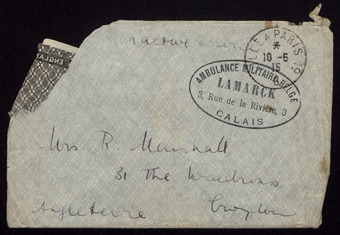 ENGLA
LLE A PARIS
*
10-5
15
AMBULANCE MILITAIRE BELGE
LAMARCK
3, Rue de la Rivière, 3
CALAIS
Mrs. R. Marshall
31 The Waldrons
Angleterre Croydon